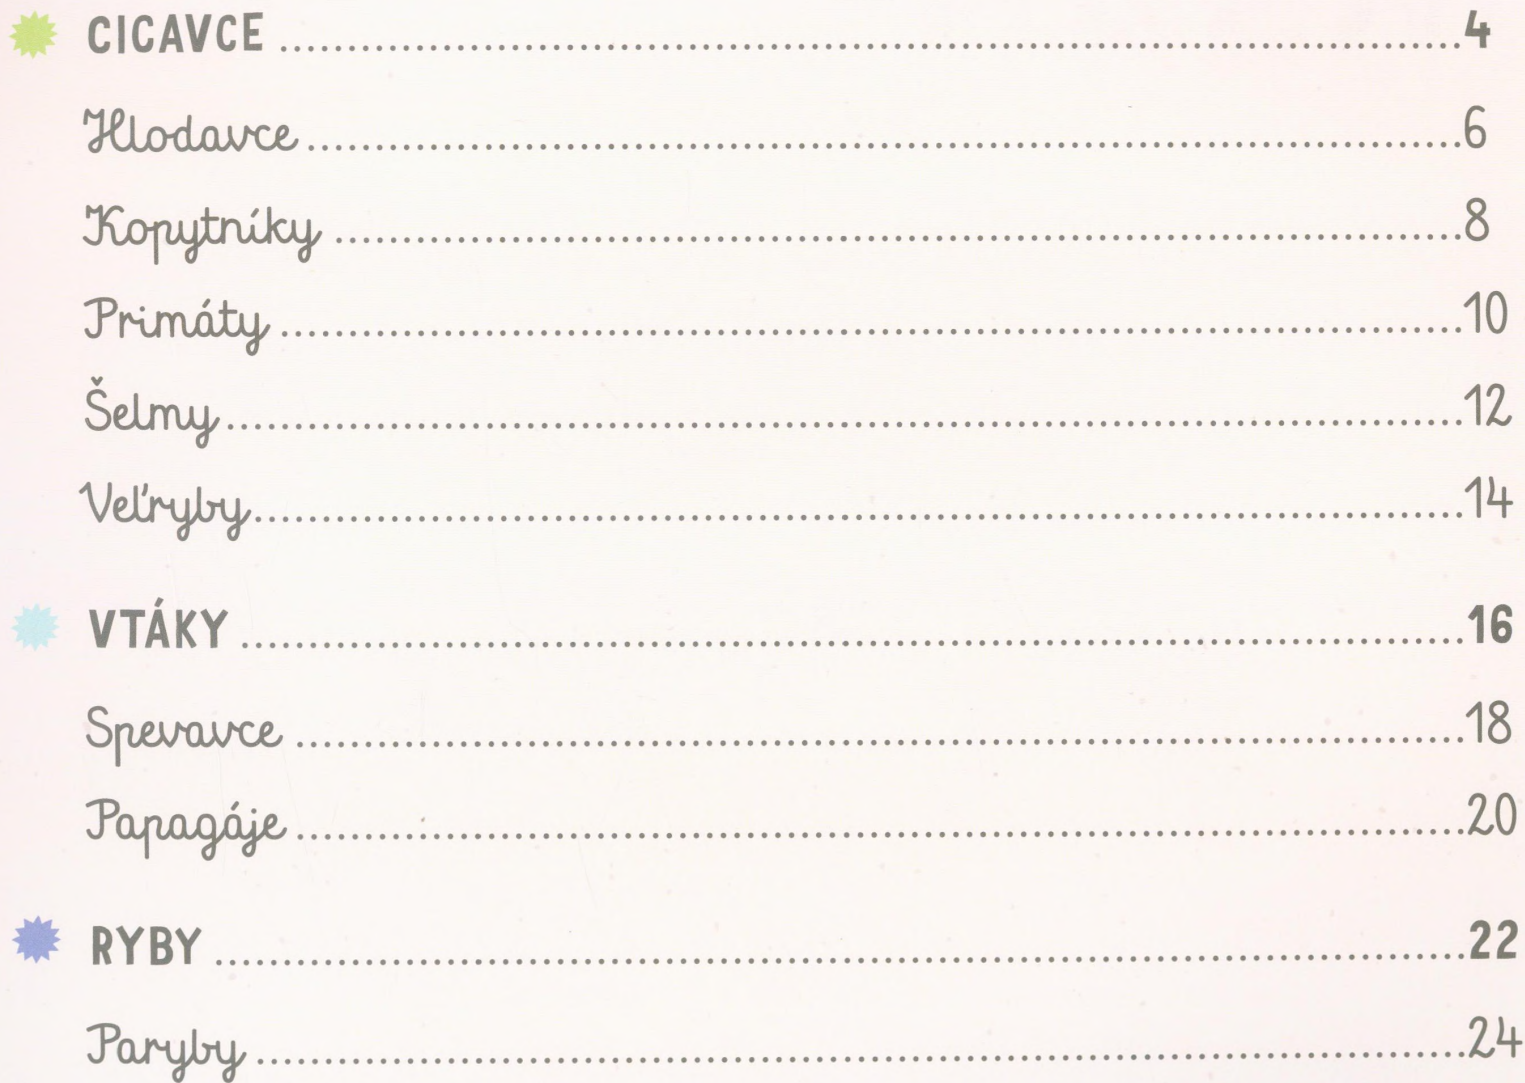 CICAVCE ........ 4
Hlodavce ........ 6
Kopytníky ........ 8
Primáty ........ 10
Šelmy ........ 12
Veľryby ........ 14
VTÁKY ........ 16
Spevavce ........ 18
Papagáje ........ 20
RYBY ........ 22
Paryby ........ 24